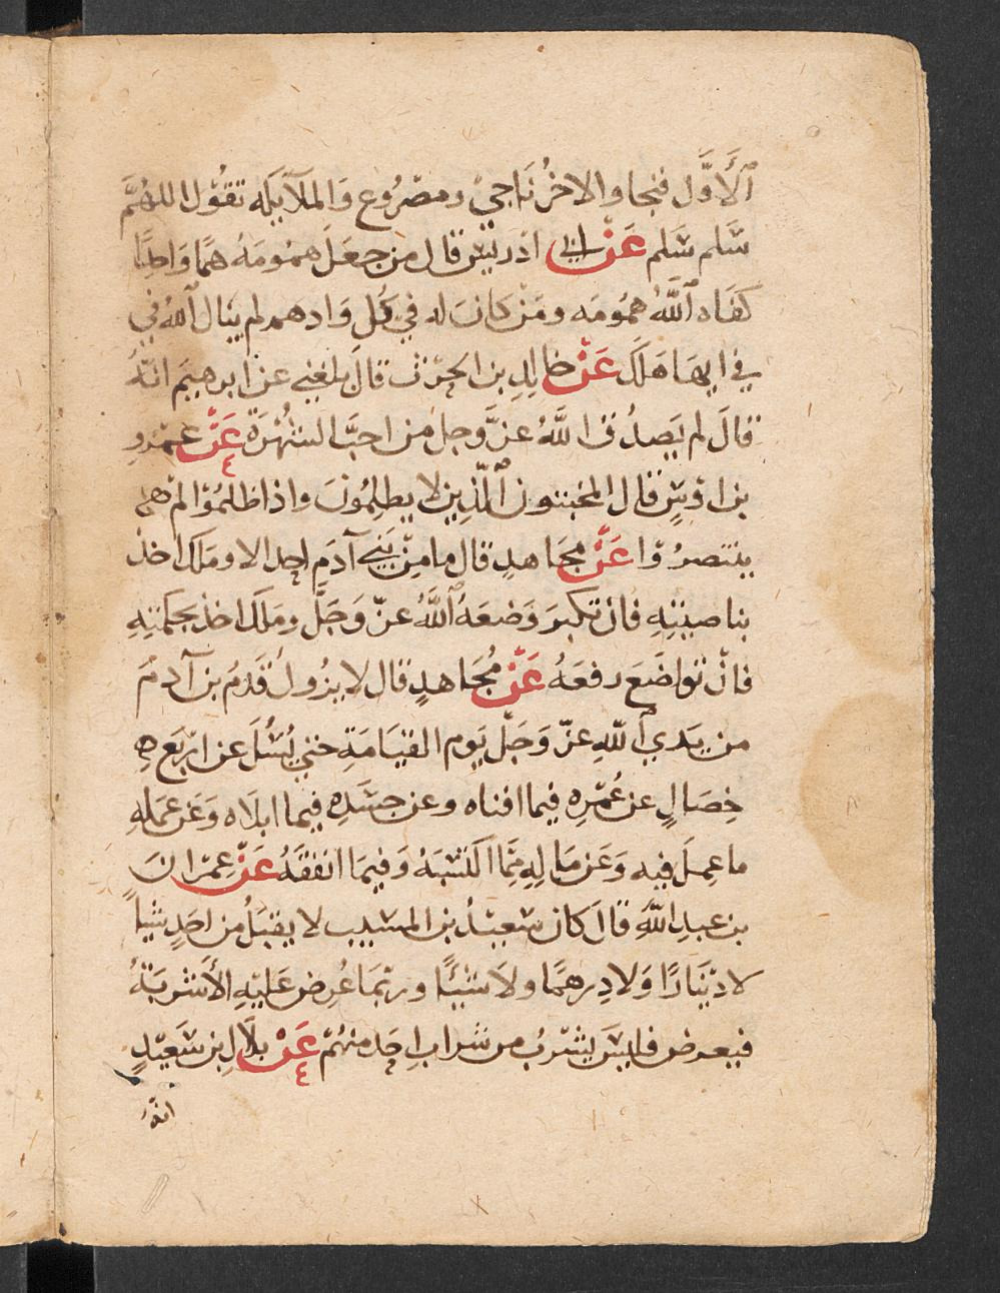 ٱلْأَوَّل فنجا والاخرُ نَاجيْ ومصْرُوع وَالملَآيكه تقُوْل اللهُمَّ
سَّلم سَّلم عَنْ ابي ادريسْ قال من جعَلَ همُومَهُ همًّا وَاحِدًا
كفَاه ٱللَّهُ همُومَه ومَنْ كانَ له في كُل وَادهم لم يبَال ٱللهُ في
في ايهَا هَلَكَ عَنْ خالِدِ بن الحرْث قالَ بلغني عن ابرهيمَ انَّهُ
قالَ لم يَصدُق اللَّهُ عزَّوجل من احبَّ الشُهْرَةَ عَنْ عمْرِو
بن اوْسٍ قال المخبتون ٱلَّذِين لا يظلِمُونَ واذا ظلمُوْا لمْ
ينتصرُوا عَنْ مجَاهدٍ قال ما مِنْ بَنى آدَمِ احد الا ومَلَك اخذ
بناصيَتِهِ فانْ تكبرَ وَضعَهُ ٱللَّهُ عزّ وَجَلَّ ومَلَك اخذ بحكمَتِهِ
فانْ تواضَعَ رفعَهُ عَنْ مُجَاهدٍ قال لا يزُول قَدَمُ بن آدمَ
من يَدي ٱللهِ عزّ وَجَلّ يَوم القيَامَةِ حتي يُسْئلَ عن ارْبَع
خِصَالٍ عن عُمْرِه فيما افناه وعن جسَدِه فيما ابلَاه وَعَن عمَلِهِ
ما عمِلَ فيه وَعَن مَالِهِ مِمَّا اكتسَبَهُ وَفيمَا انفقَهُ عَنْ عِمْرانَ
بن عبدِ اللّهِ قالَ كان سعيْدُ بن المسَيب لا يقبَلُ من احَدٍ شيأً
لا ديْنَارًا وَلا دِرهمًا ولَا شَيْئًا وربّمَا عُرِض عَليْهِ الأشْربَةُ
فيعرض فليسَ يشْرَبُ من شرابِ احَد منهُمْ عَنْ بلَالِ بن سَعيْدٍ
انهُ